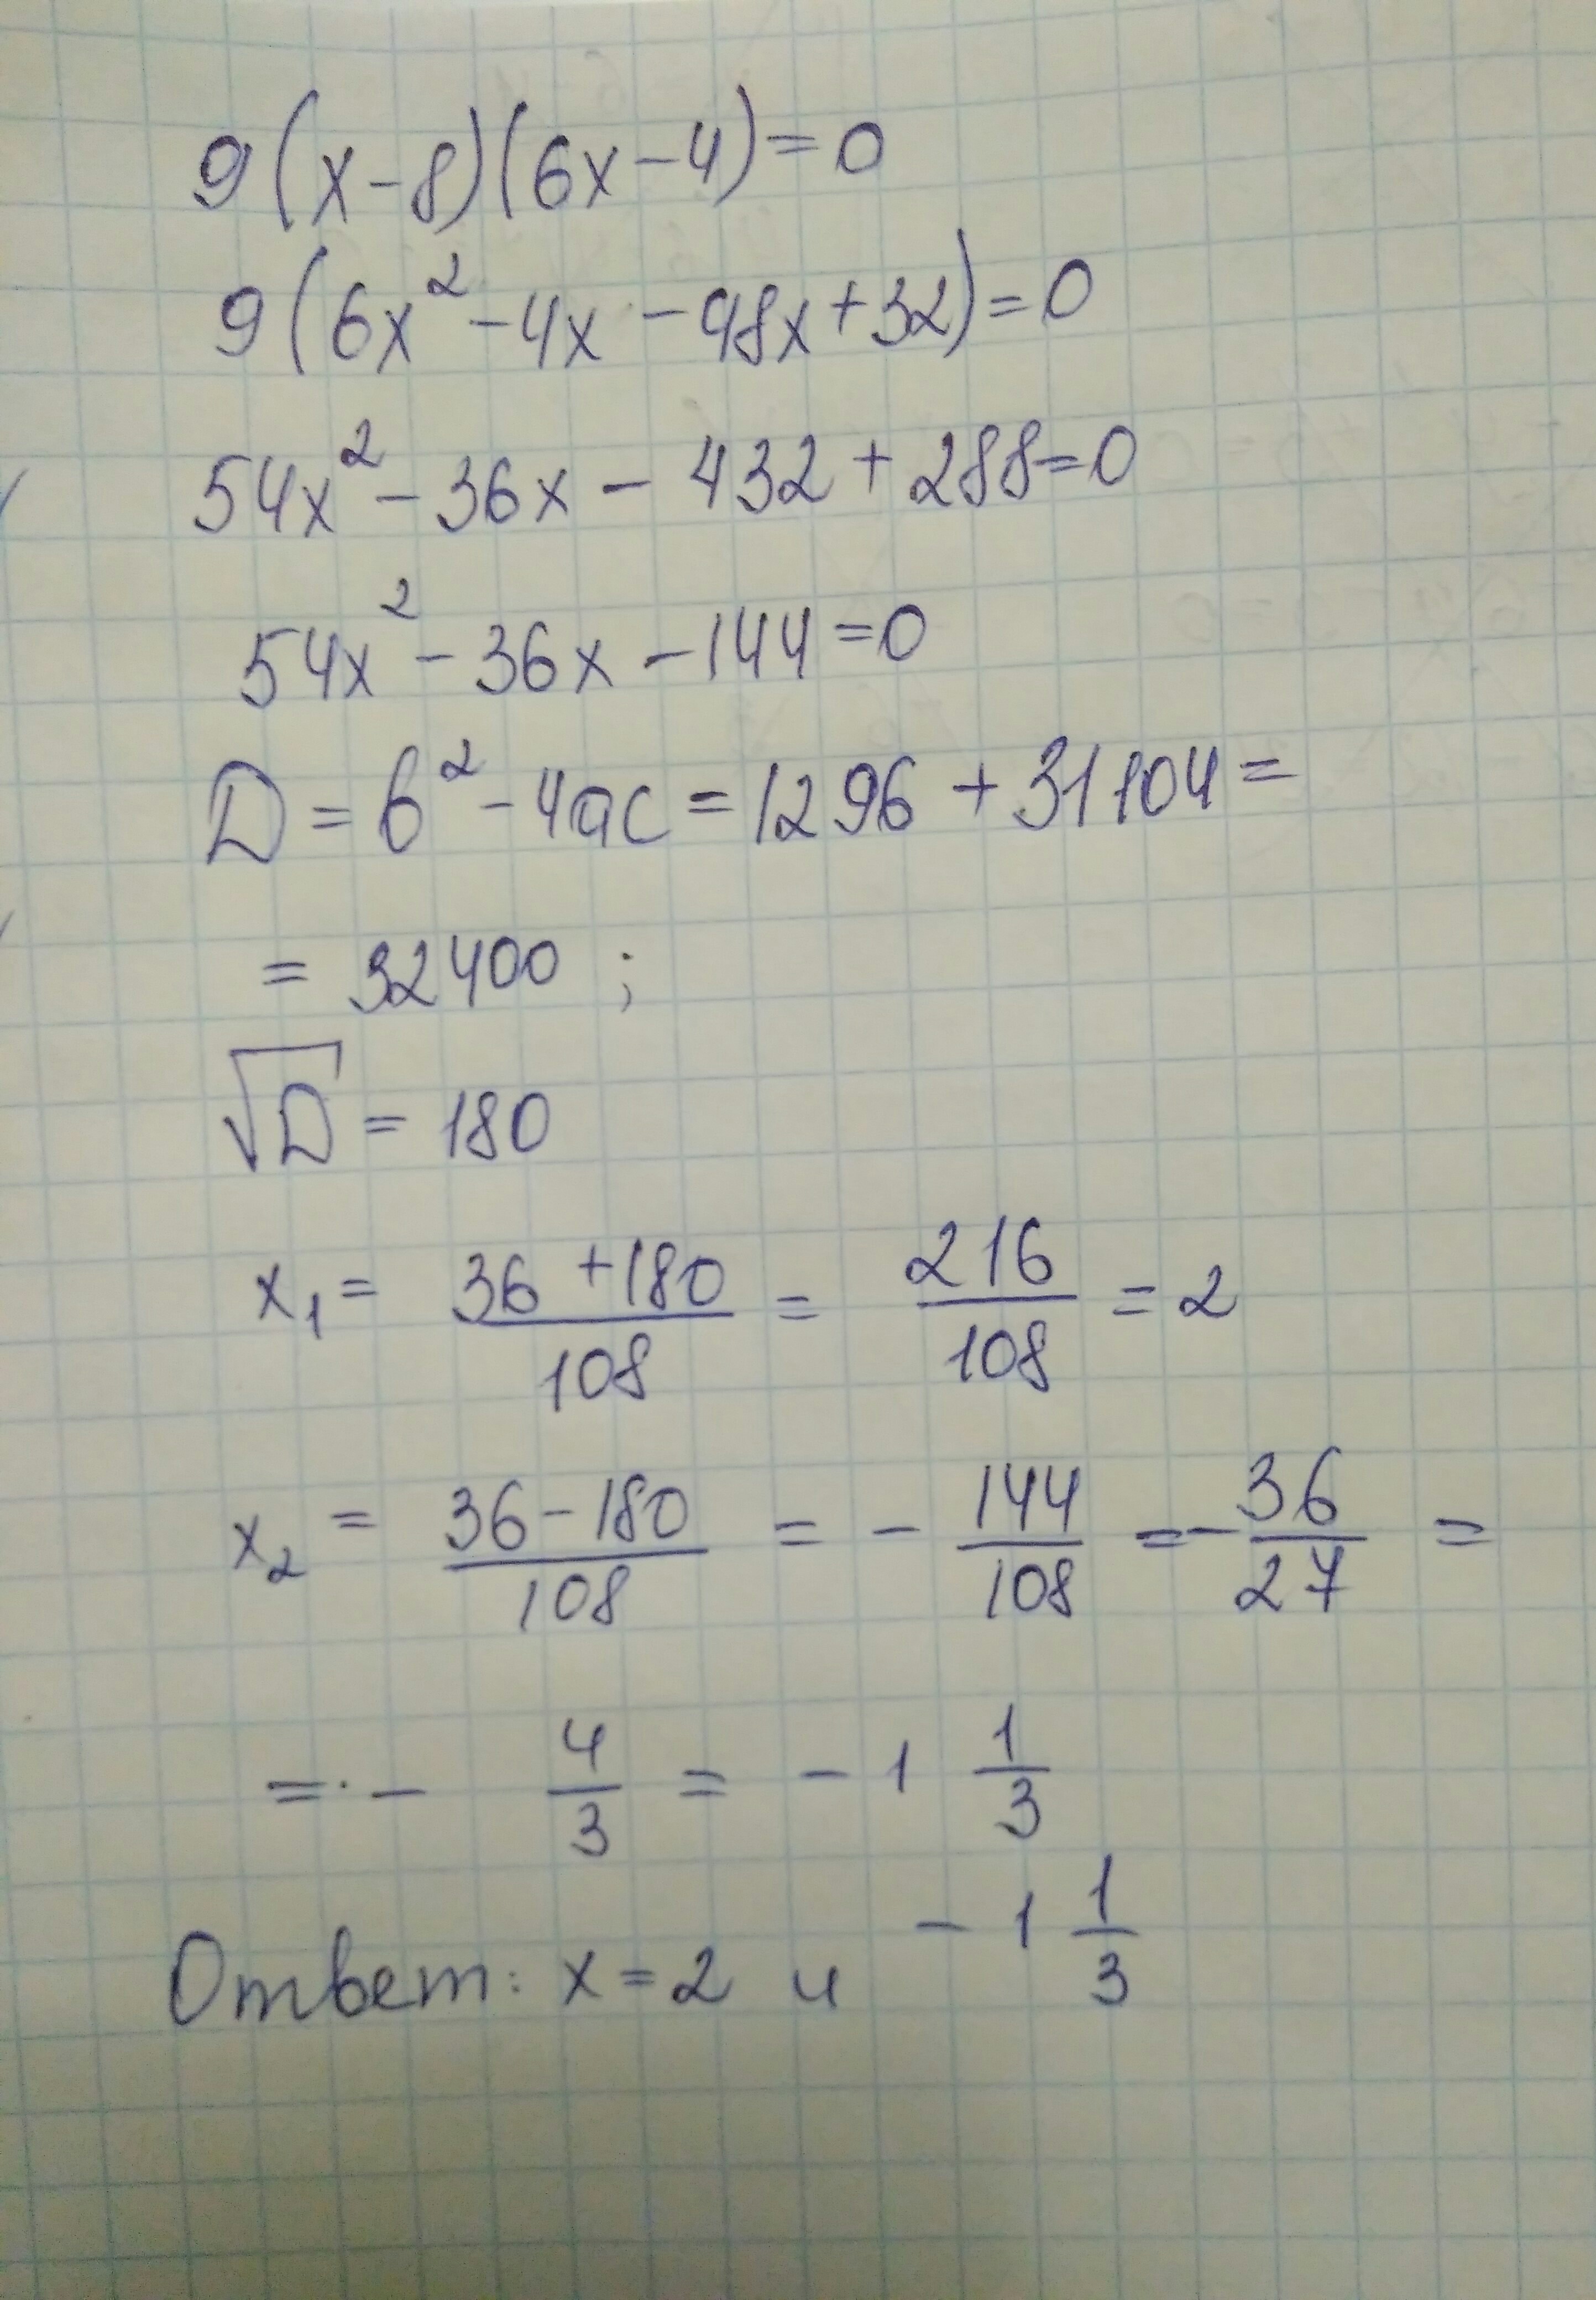 9(x-8)(6x-4)=0
9(6x²-4x-48x+32)=0
54x²-36x-432+288=0
54x²-36x-144=0
D=b²-4ac=1296+31104=
=32400;
√D=180
x₁= (36+180)/108 = 216/108 = 2
x₂ = (36-180)/108 = - 144/108 = - 36/27 =
= - 4/3 = -1 1/3
Ответ: x=2 и -1 1/3